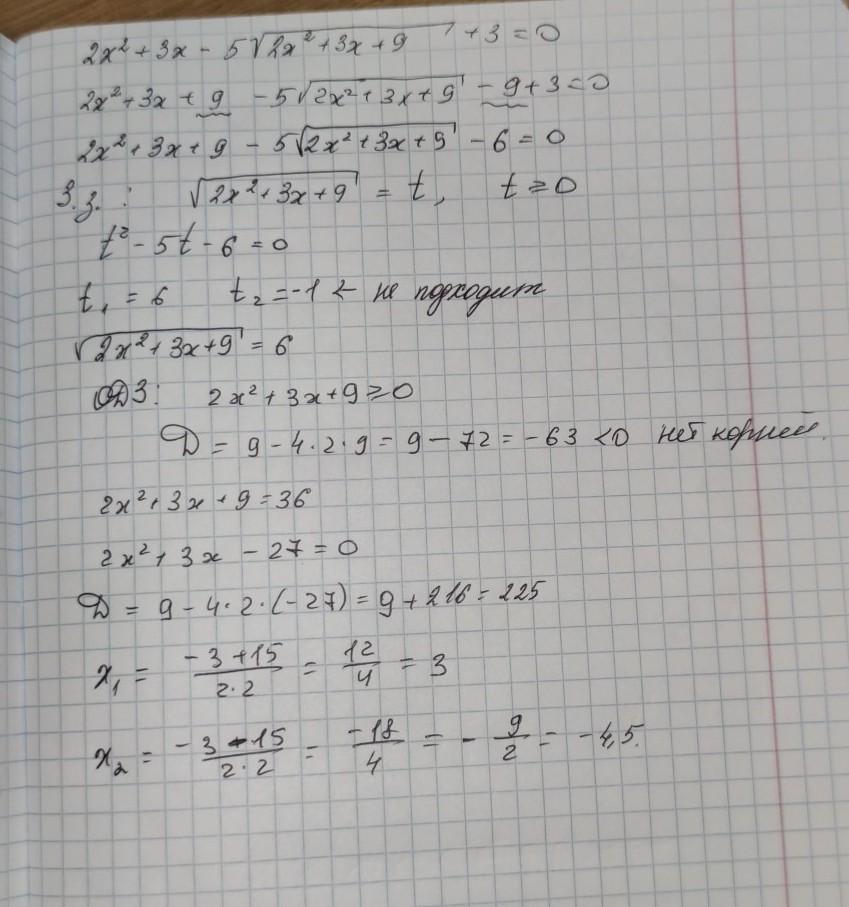 2x² + 3x - 5√(2x² + 3x + 9) + 3 = 0
2x² + 3x + 9 - 5√(2x² + 3x + 9) - 9 + 3 = 0
2x² + 3x + 9 - 5√(2x² + 3x + 9) - 6 = 0
З.з. : √(2x² + 3x + 9) = t, t ⩾ 0
t² - 5t - 6 = 0
t₁ = 6 t₂ = -1 ← не подходит
√(2x² + 3x + 9) = 6
ОДЗ: 2x² + 3x + 9 ⩾ 0
D = 9 - 4·2·9 = 9 - 72 = -63 < 0 нет корней.
2x² + 3x + 9 = 36
2x² + 3x - 27 = 0
D = 9 - 4·2·(-27) = 9 + 216 = 225
x₁ = (-3 + 15)/(2·2) = 12/4 = 3
x₂ = (-3 - 15)/(2·2) = -18/4 = -9/2 = -4,5.